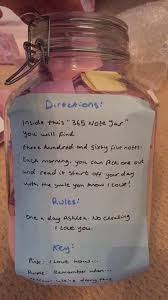 Directions:
Inside this "365 Note Jar"
you will find
three hundred and sixty five notes.
Each morning, you can pick one out
and read it start off your day
with the smile you know I love!
Rules:
One a day Ashlea. No cheating
I love you.
Key:
Pink: I love how...
Purple: Remember when...